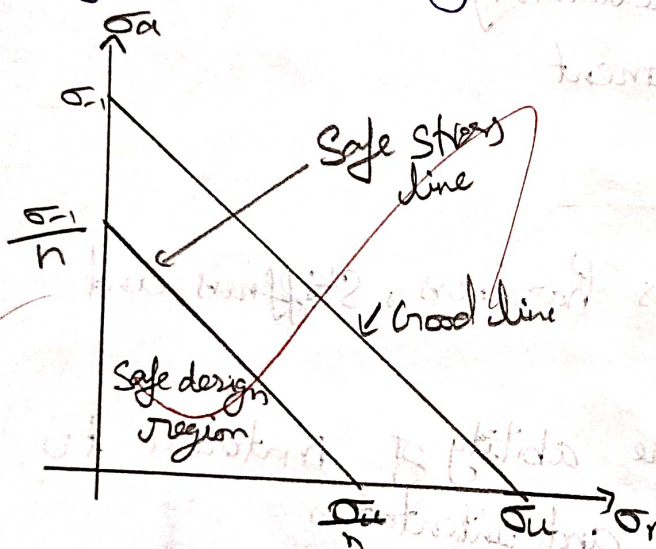 σa
σ-1
Safe stress
line
σ-1
n
Good line
Safe design
region
σu
n
σu